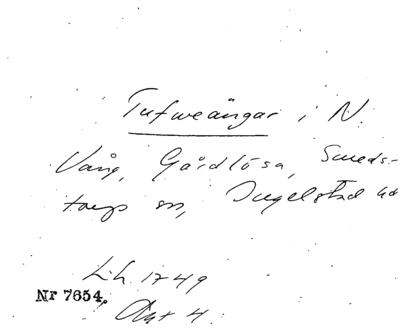 Tufweängar i N.
Vång, Gårdlösa, Smeds-
torps sn, Ingelstad hd
Lh. 1749
Nr 7654.
Akt 4